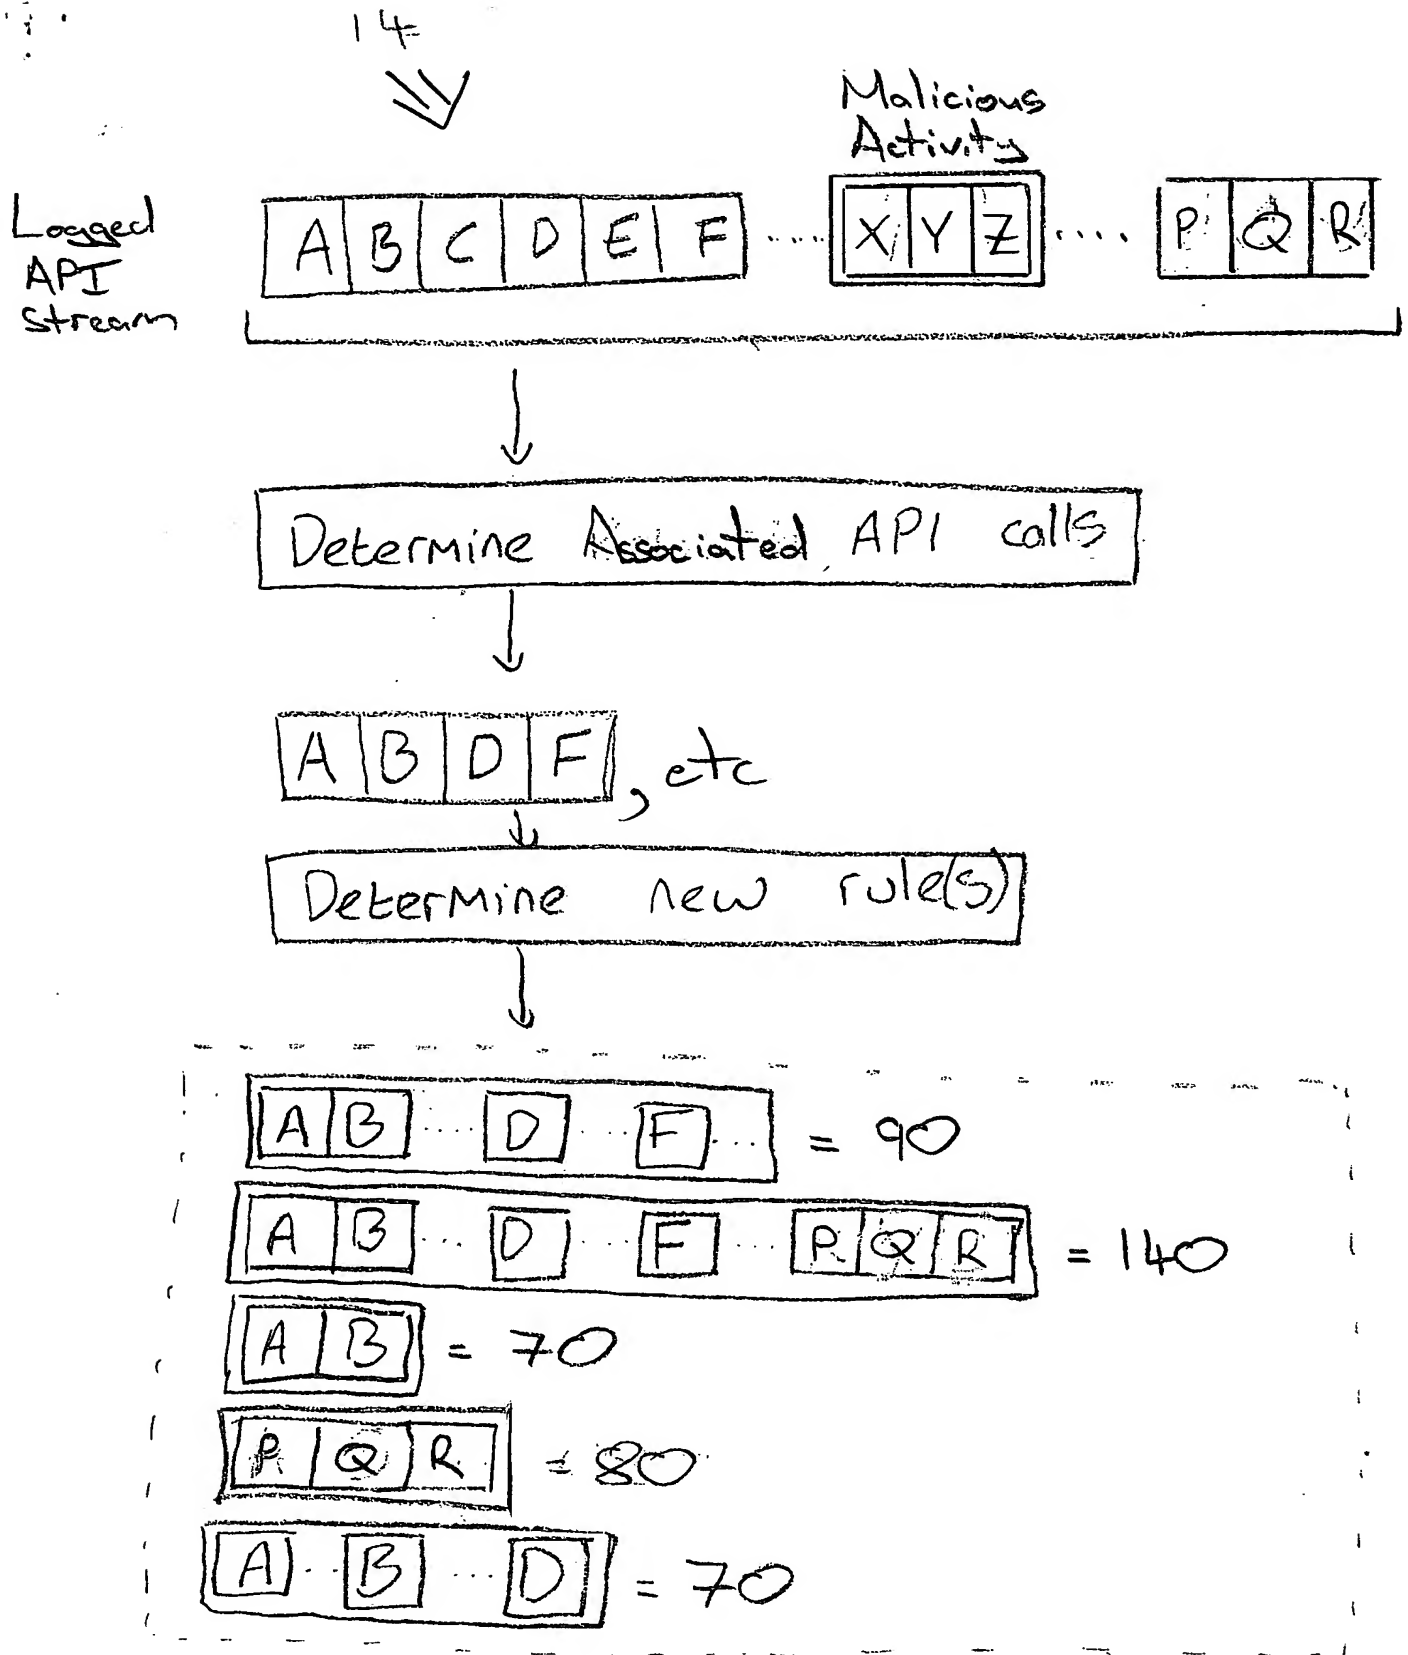 14
Malicious
Activity
Logged
API
stream
A B C D E F ..... X Y Z ..... P Q R
Determine Associated API calls
A B D F, etc
Determine new rule(s)
A B ..... D ... F ... = 90
A B ... D ... F ... P Q R = 140
A B = 70
P Q R = 80
A ... B ... D = 70